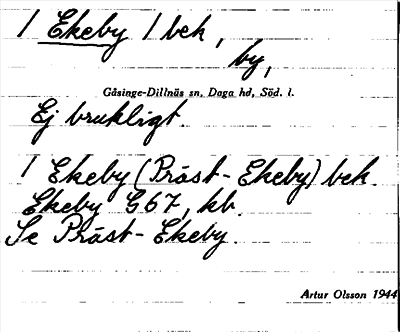 1 Ekeby 1 bek,
by,
Gåsinge-Dillnäs sn, Daga hd, Söd. l.
Ej brukligt.
1 Ekeby (Präst-Ekeby) bek.
Ekeby G67, kb.
Se Präst-Ekeby.
Artur Olsson 1944